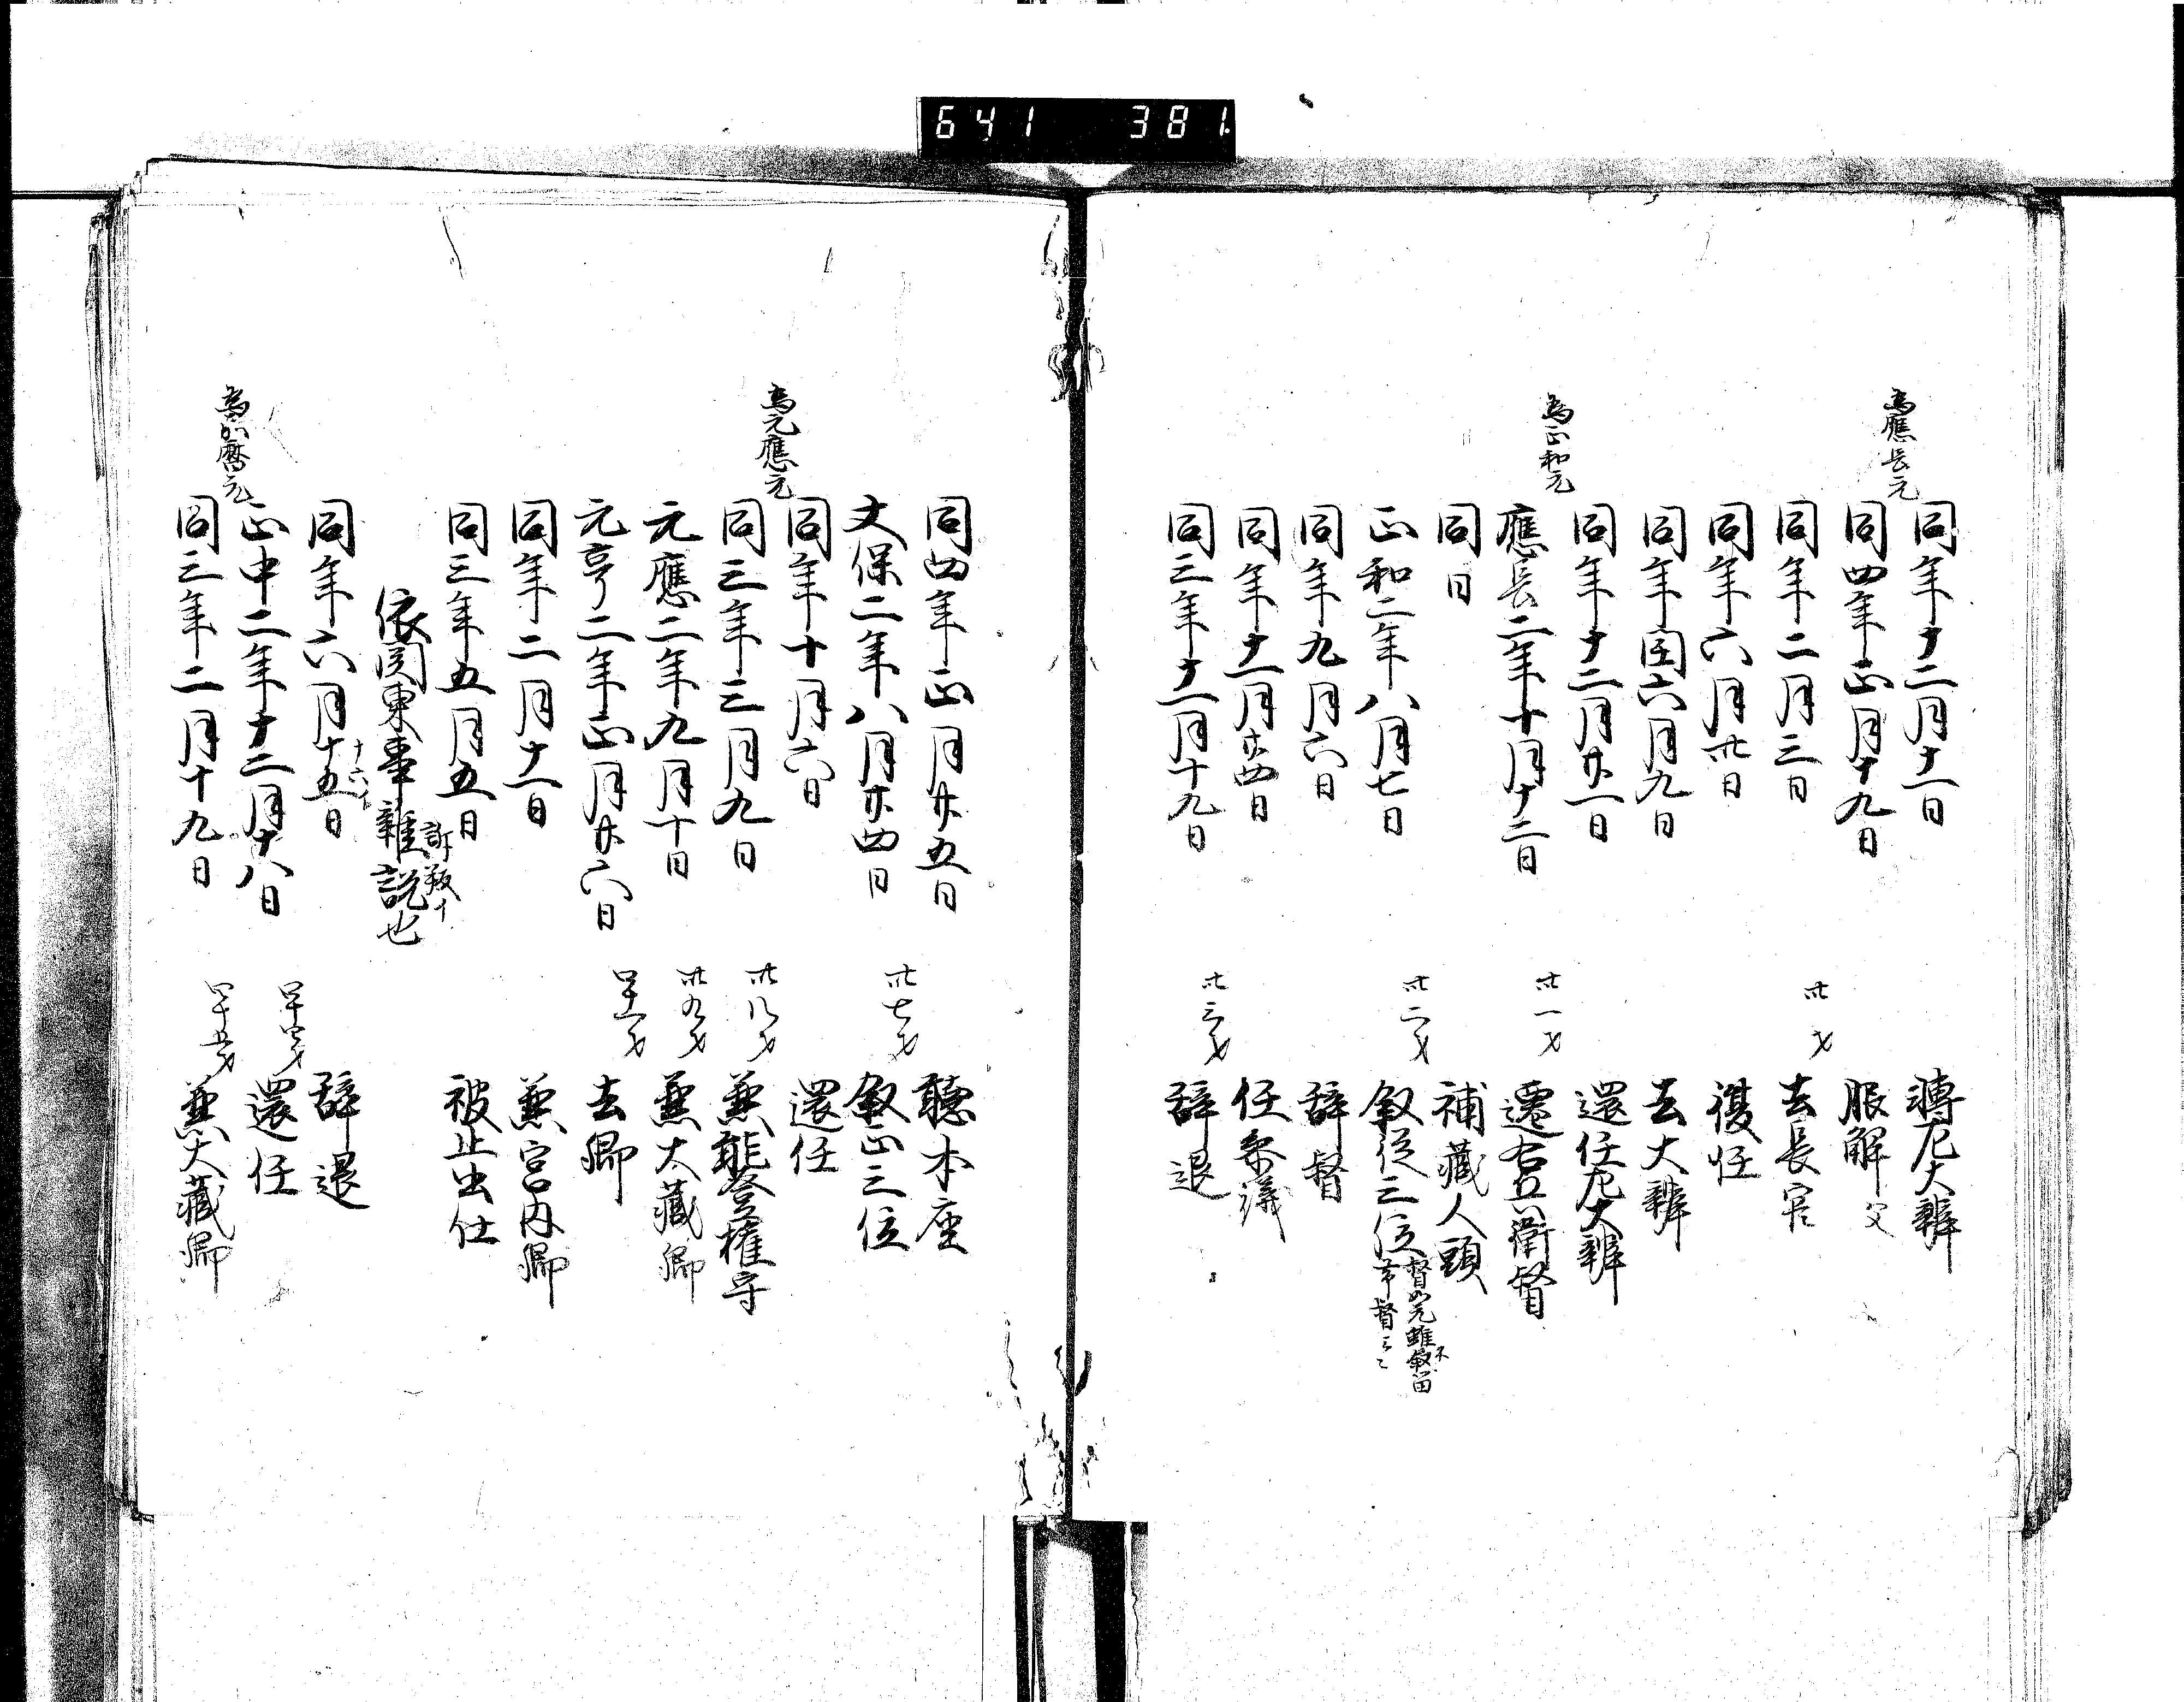 641 381
同年十二月十一日 轉左大辨
爲應長元
同四年正月十九日 服解 父
同年二月三日 卅才 去長官
同年六月卅日 復任
同年閏六月九日 去大辨
同年十二月廿一日 還任左大辨
爲正和元
應長二年十月十二日 卅一才 遷右兵衛督
同日 補藏人頭
正和二年八月七日 卅二才 敘從三位
同年九月六日 辞督
同年十一月廿四日 任参議
同三年十一月十九日 卅三才 辞退
同四年正月廿五日 聽本座
文保二年八月廿四日 卅七才 敘正三位
同年十月六日 還任
爲元應元
同三年三月九日 卅八才 兼能登權守
元應二年九月十日 卅九才 兼大藏卿
元亨二年正月廿六日 四十一才 去卿
同年二月十一日 兼宮内卿
同三年五月五日 被止出仕
依関東事雜説也
同年六月十五日 辞退
正中二年十二月十八日 四十四才 還任
爲嘉暦元
同三年二月十九日 四十五才 兼大藏卿